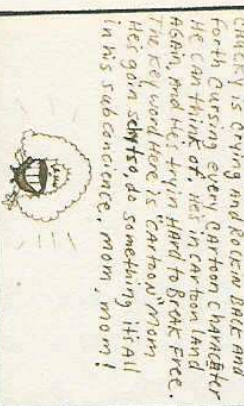 CHUCKY is crying AND ROCKIN BACK AND
forth Cursing every CARTOON CHARACATER
He CAN think of. He's in CARTOON LAND
AGAIN, AND He's tryin HARD to BreAK Free.
The key word Here is "CARTOON" MOM
He's goin schytso, do something it's All
in his subconcience. mom, mom!